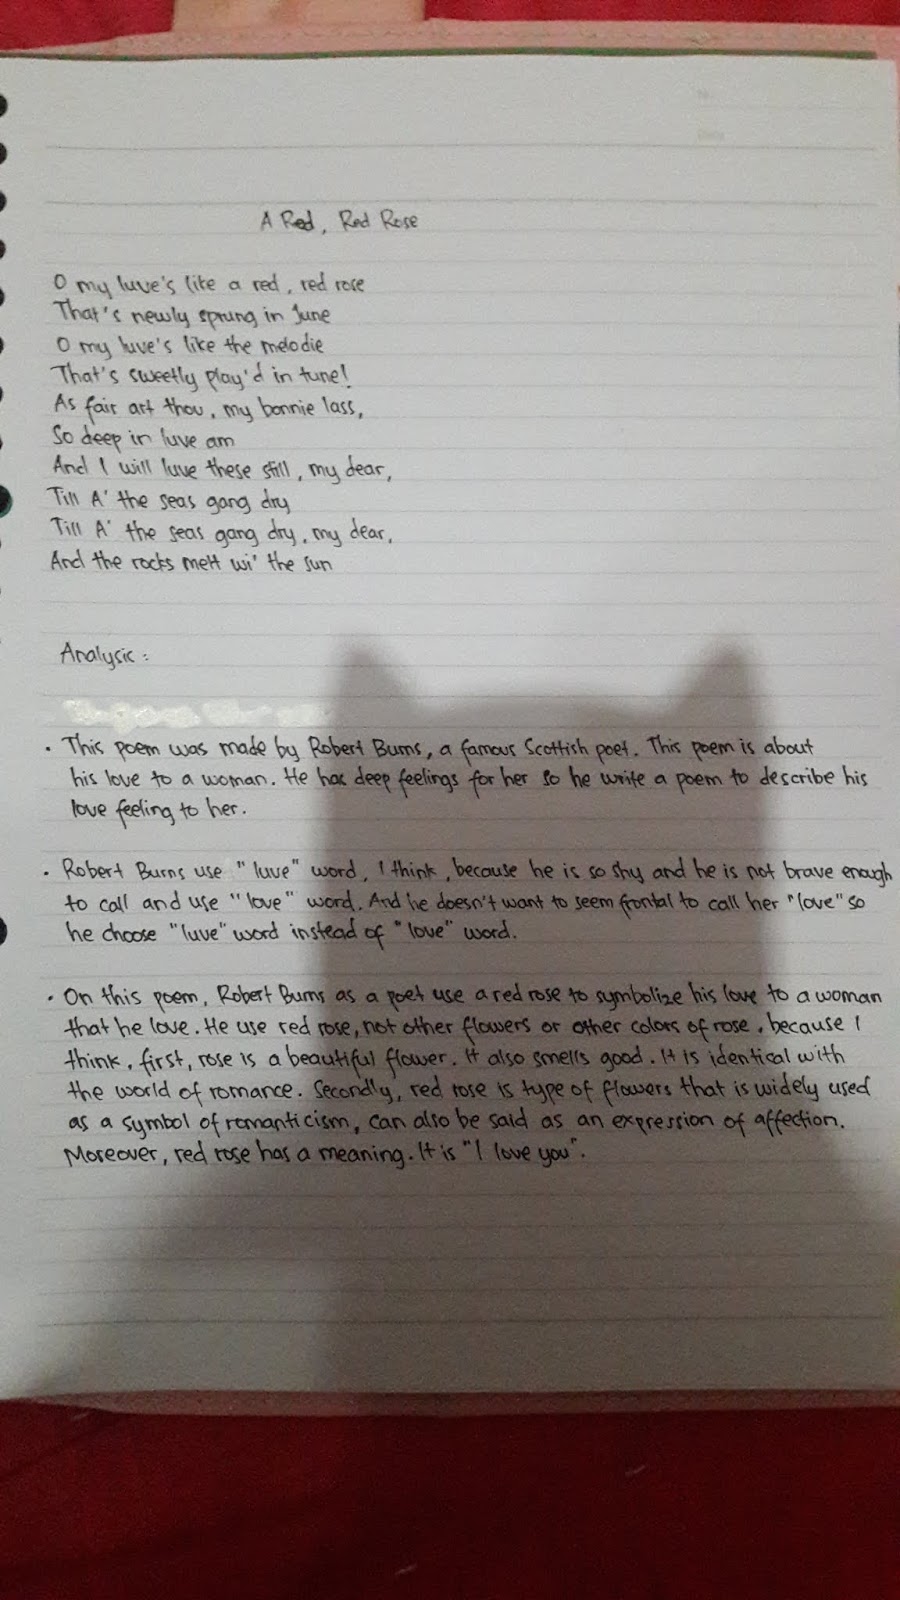 A Red, Red Rose
O my luve's like a red, red rose
That's newly sprung in June
O my luve's like the melodie
That's sweetly play'd in tune!
As fair art thou, my bonnie lass,
So deep in luve am
And I will luve these still, my dear,
Till A' the seas gang dry
Till A' the seas gang dry, my dear,
And the rocks melt wi' the sun
Analysis :
• This poem was made by Robert Burns, a famous Scottish poet. This poem is about
his love to a woman. He has deep feelings for her so he write a poem to describe his
love feeling to her.
• Robert Burns use "luve" word, I think, because he is so shy and he is not brave enough
to call and use "love" word. And he doesn't want to seem frontal to call her "love" so
he choose "luve" word instead of "love" word.
• On this poem, Robert Burns as a poet use a red rose to symbolize his love to a woman
that he love. He use red rose, not other flowers or other colors of rose, because I
think, first, rose is a beautiful flower. It also smells good. It is identical with
the world of romance. Secondly, red rose is type of flowers that is widely used
as a symbol of romanticism, can also be said as an expression of affection.
Moreover, red rose has a meaning. It is "I love you".